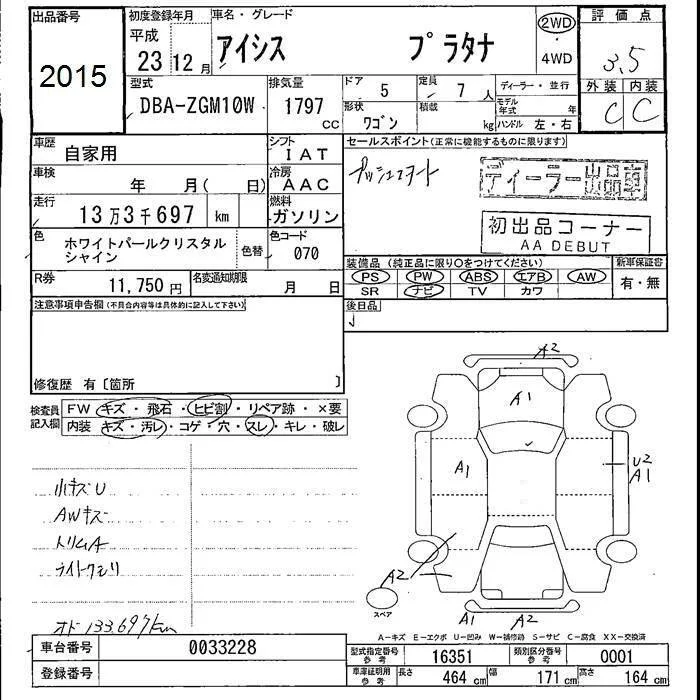 出品番号 初度登録年月 車名・グレード 2WD 評価点
2015 平成 23 12月 アイシス プラタナ 4WD 3.5
型式 排気量 ドア 5 定員 7人 ディーラー・並行 外装 内装
DBA-ZGM10W 1797 cc 形状 ワゴン 積載 kg モデル年式 年 ハンドル 左・右 C C
車歴 自家用 シフト IAT セールスポイント(正常に機能するものに限ります)
車検 年 月( 日) 冷房 AAC プッシュスタート ディーラー出品車
走行 13万3千697 km 燃料 ガソリン 初出品コーナー
AA DEBUT
色 ホワイトパールクリスタルシャイン 色替 色コード 070
装備品(純正品に限り○をつけてください) 新車保証書
PS PW ABS エアB AW 有・無
SR ナビ TV カワ
R券 11,750円 名変通知期限 月 日
注意事項申告欄(不具合内容等は具体的に記入して下さい) 後日品
修復歴 有〔箇所 〕
検査員記入欄 FW キズ・飛石・ヒビ割・リペア跡・×要
内装 キズ・汚レ・コゲ・穴・スレ・キレ・破レ
A2
A1
A1
U2
A1
A2
スペア
A1 A2
小キズU
AWキズ
トリムA
ライトクモリ
オド133,697km
A-キズ E-エクボ U-凹み W-補修跡 S-サビ C-腐食 XX-交換済
車台番号 0033228 型式指定番号 参考 16351 類別区分番号 参考 0001
登録番号 車庫証明用 参考 長さ 464cm 幅 171cm 高さ 164cm